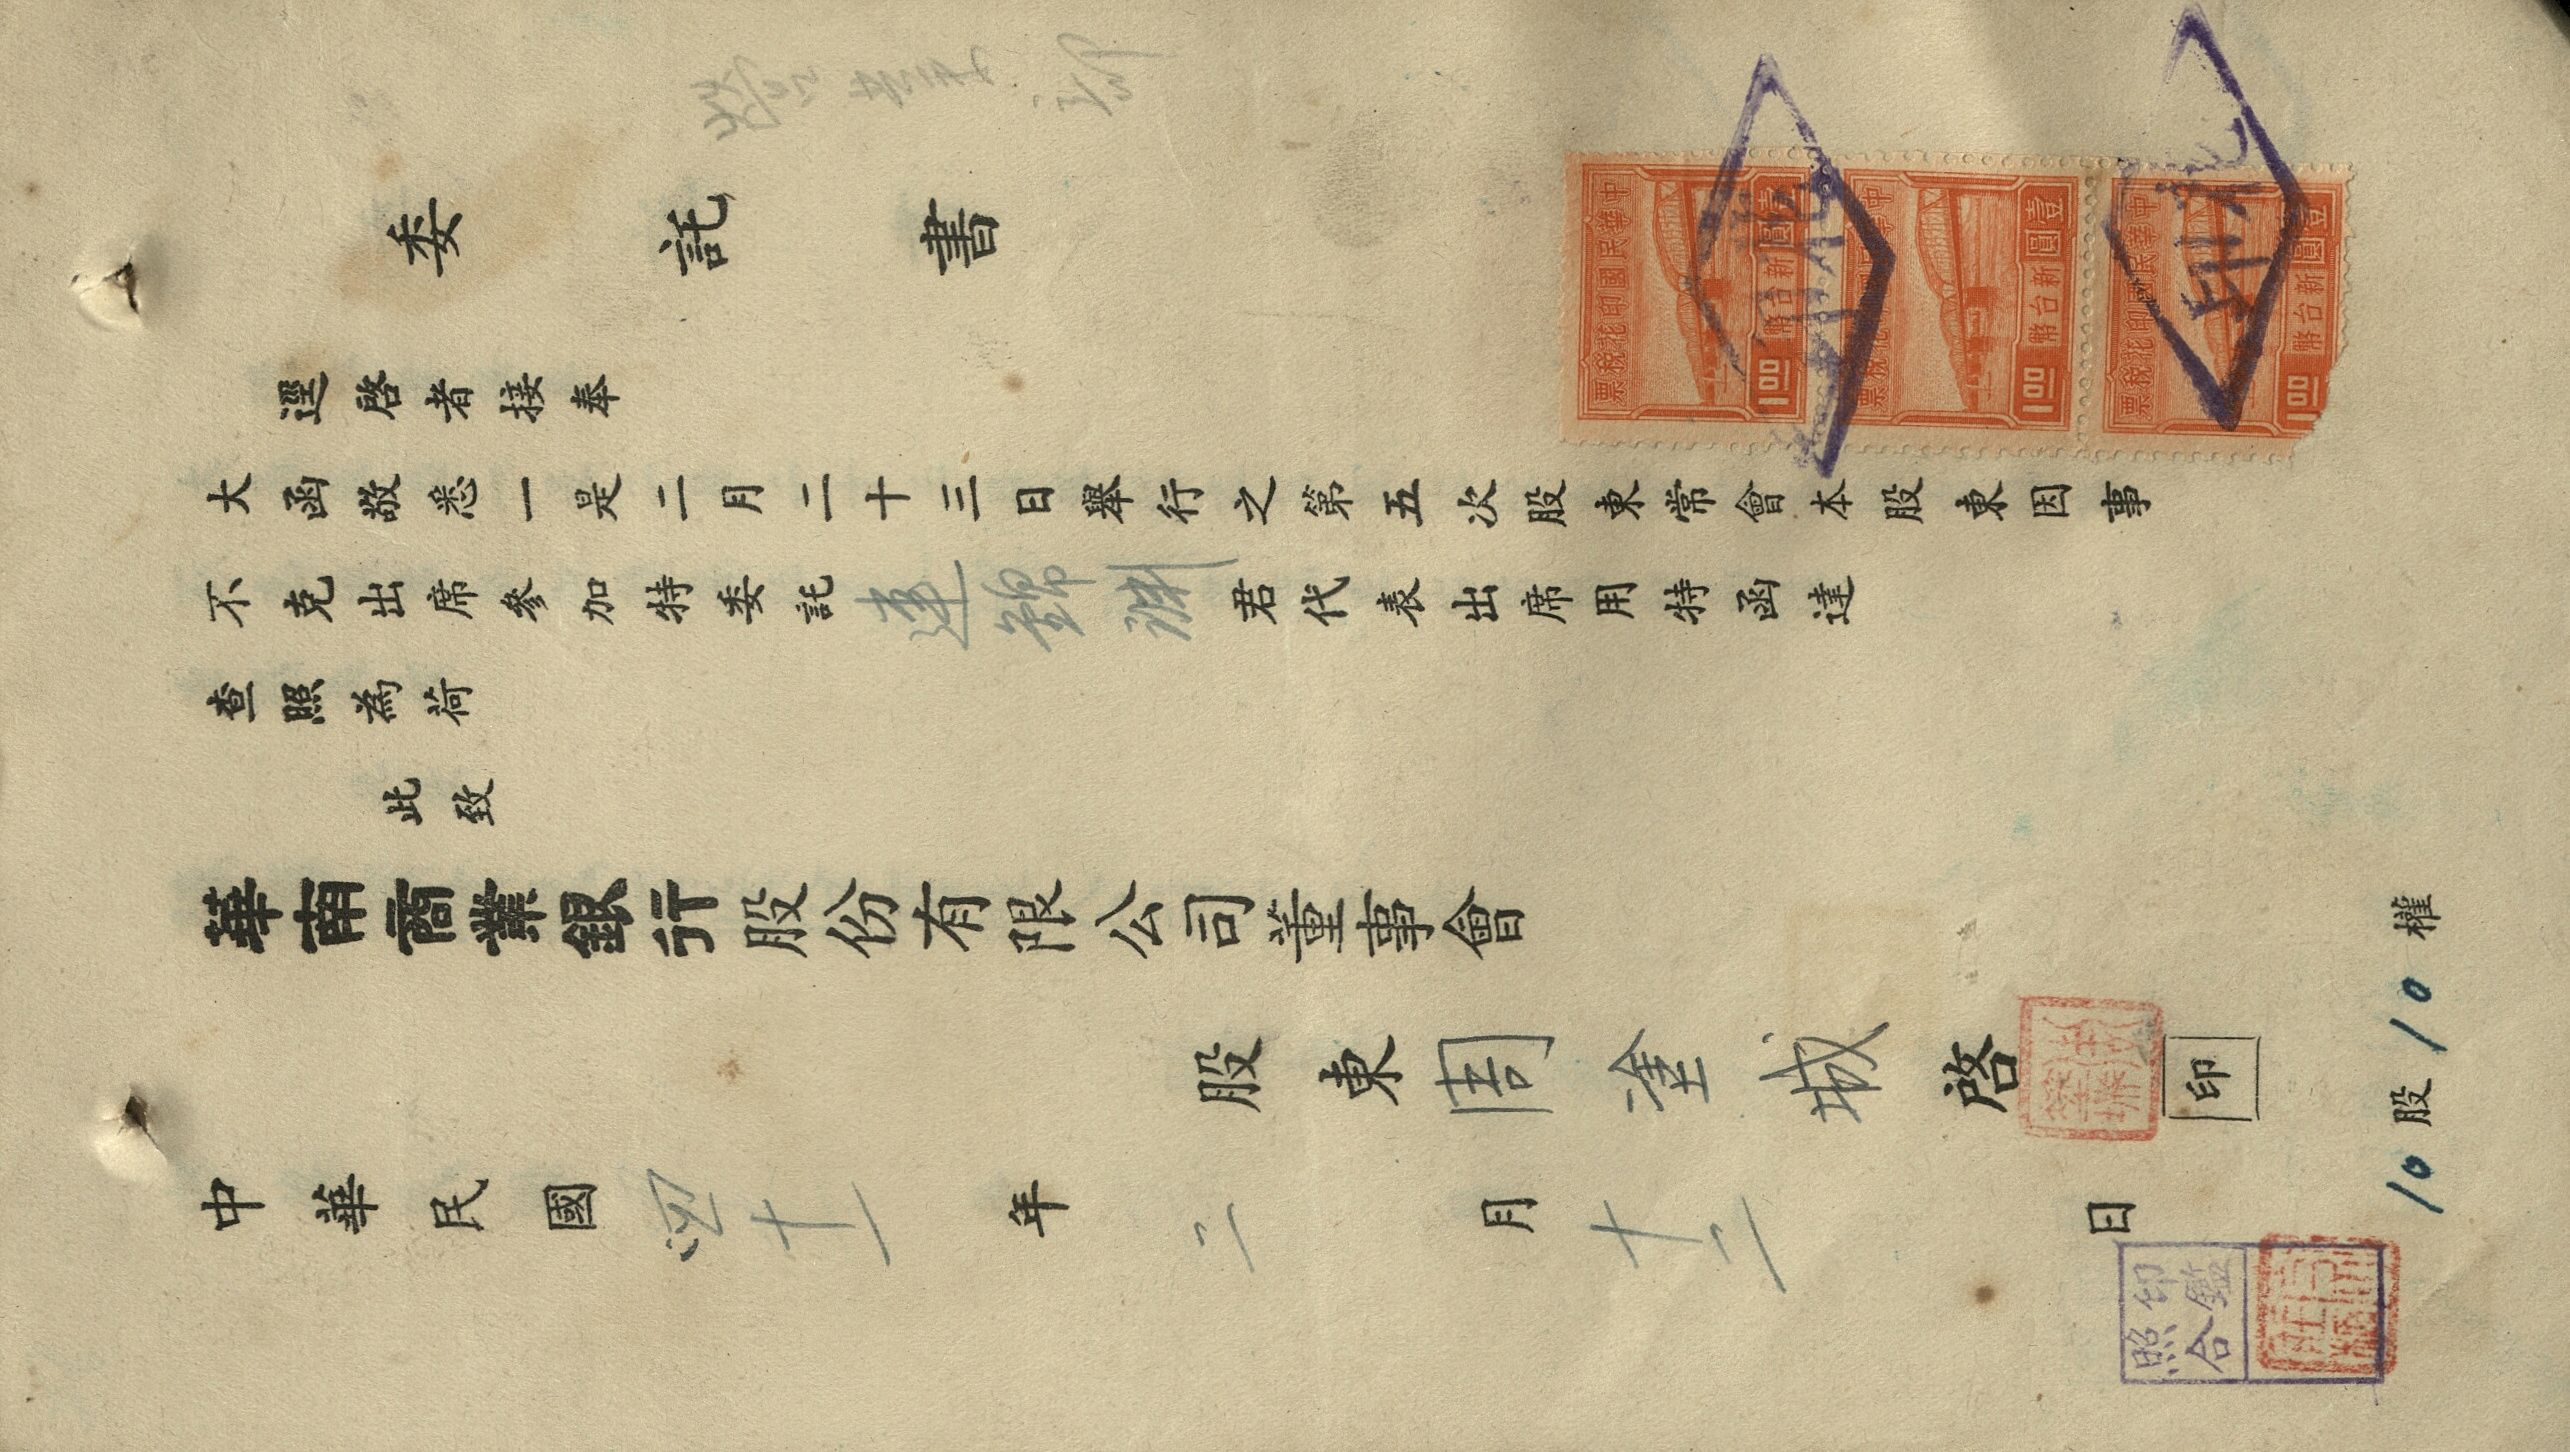 委託書
逕啓者接奉
大函敬悉一是二月二十三日舉行之第五次股東常會本股東因事
不克出席參加特委託連錦淵君代表出席用特函達
查照為荷
此致
華南商業銀行股份有限公司董事會
股東周塗城啓
印
中華民國四十一年二月十二日
10股10權
印鑑
照合
中華民國印花稅票
壹圓新台幣
1.00
中華民國印花稅票
壹圓新台幣
1.00
中華民國印花稅票
壹圓新台幣
1.00